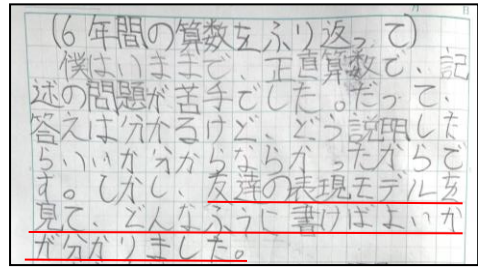 (6年間の算数をふり返って)
僕はいままで、正直算数で、記
述の問題が苦手でした。だって、
答えは分かるけど、どう説明した
らいいか分からならかったからで
す。しかし、友達の表現モデルを
見て、どんなふうに書けばよいか
が分かりました。